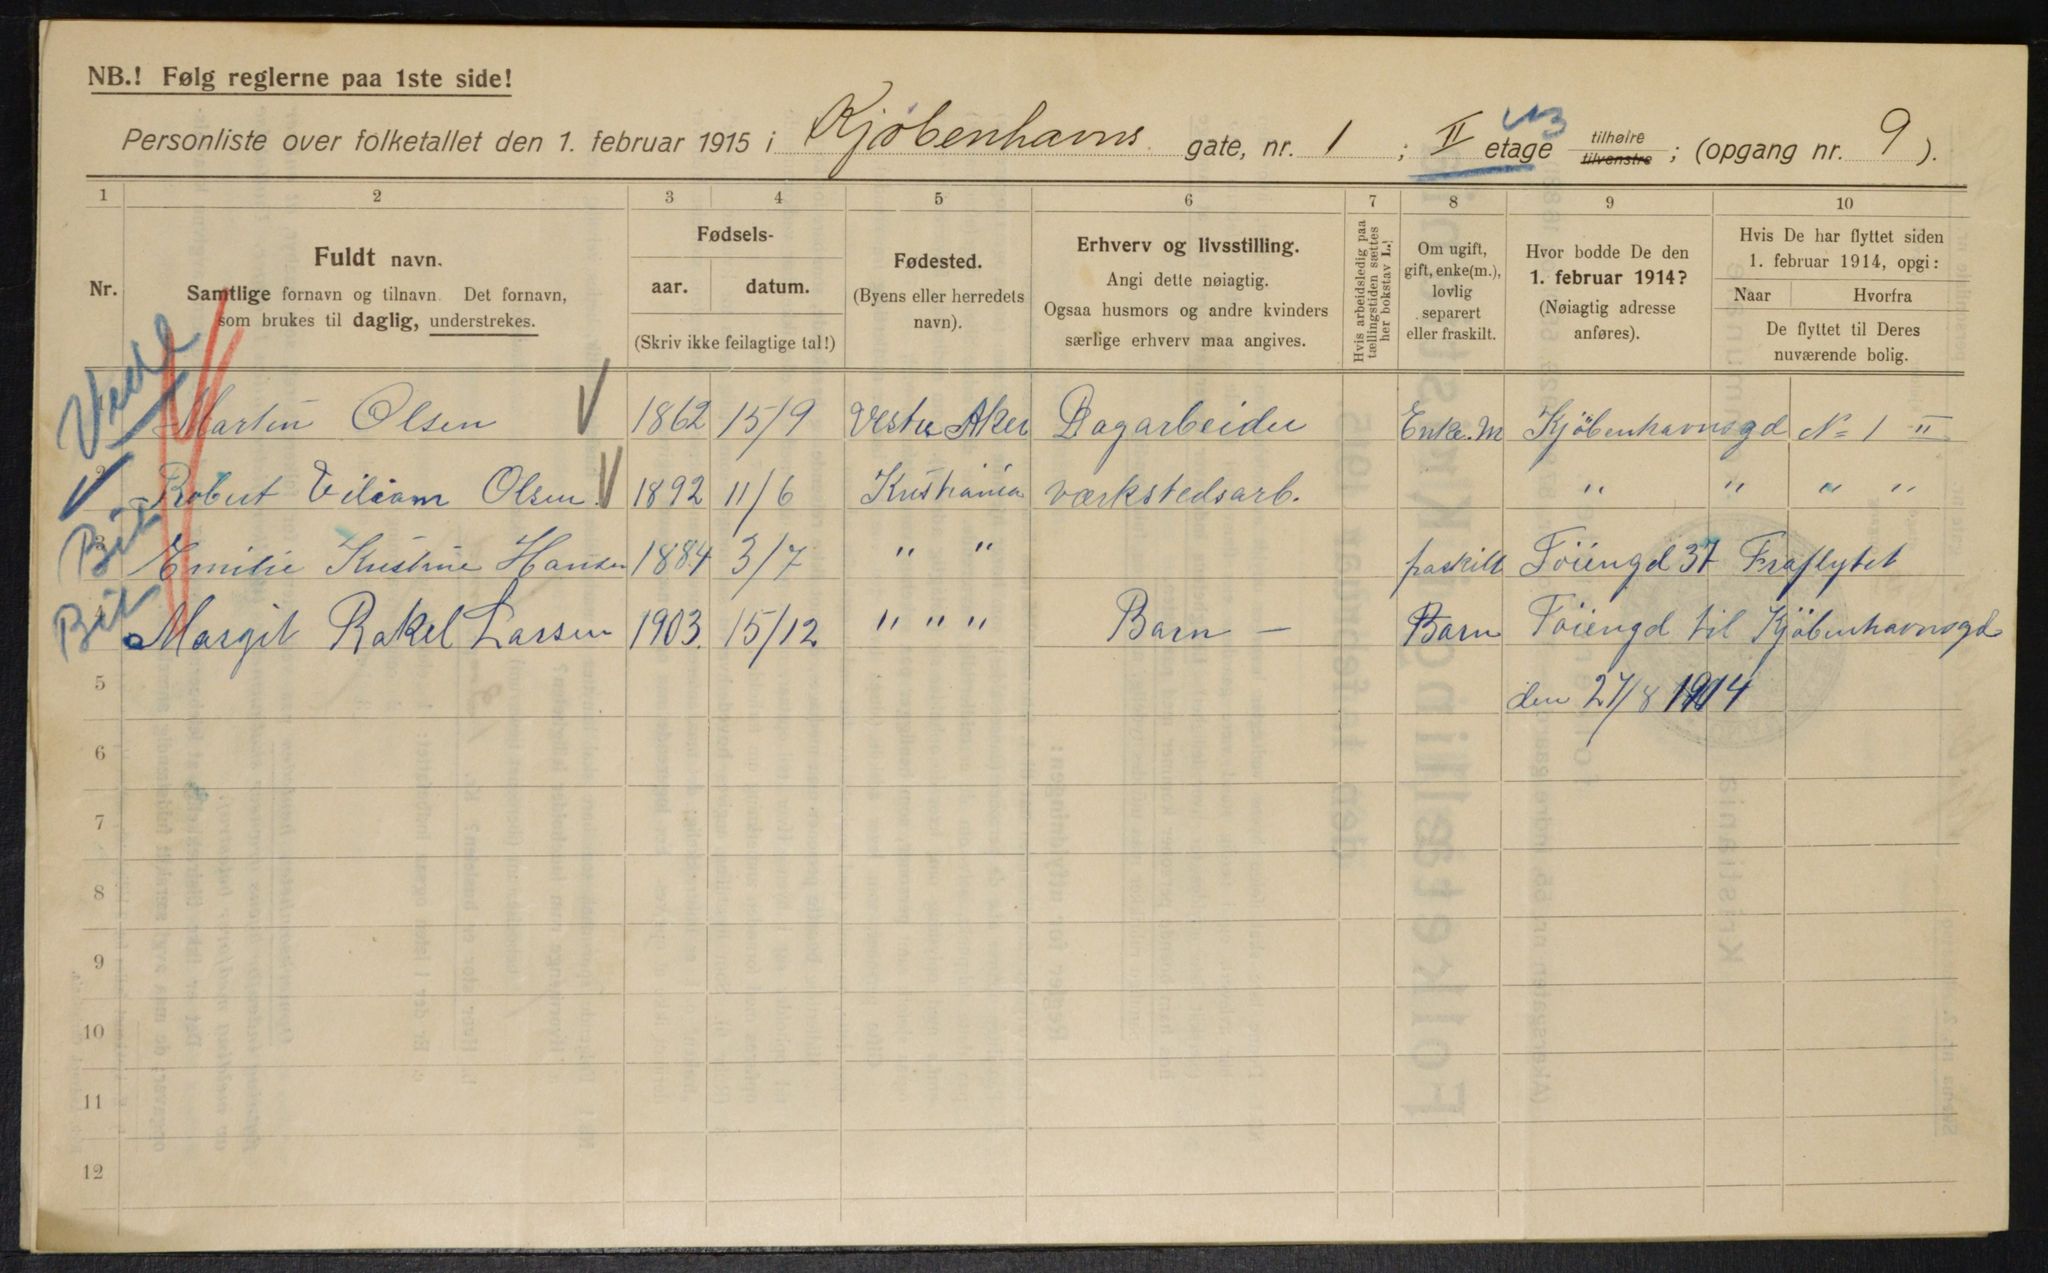 NB.! Følg reglerne paa 1ste side!
Personliste over folketallet den 1. februar 1915 i Kjøbenhavns gate, nr. 1 ; II etage tilhøire tilvenstre ; (opgang nr. 9 ).
1 2 3 4 5 6 7 8 9 10
Nr.
Fuldt navn.
Samtlige fornavn og tilnavn. Det fornavn,
som brukes til daglig, understrekes.
Fødsels-
aar. datum.
(Skriv ikke feilagtige tal!)
Fødested.
(Byens eller herredets
navn).
Erhverv og livsstilling.
Angi dette nøiagtig.
Ogsaa husmors og andre kvinders
særlige erhverv maa angives.
Hvis arbeidsledig paa
tællingstiden sættes
her bokstav L.!
Om ugift,
gift, enke(m.),
lovlig
separert
eller fraskilt.
Hvor bodde De den
1. februar 1914?
(Nøiagtig adresse
anføres).
Hvis De har flyttet siden
1. februar 1914, opgi:
Naar Hvorfra
De flyttet til Deres
nuværende bolig.
Martin Olsen 1862 15/9 Vestre Aker Dagarbeider Enke.M Kjöbenhavnsgd No 1 II
Robert Viliam Olsen 1892 11/6 Kristiania værkstedsarb. " " " "
3 Emilie Kristine Hansen 1884 3/7 " " fraskilt Töiengd 37 Fraflytet
4 Margit Rakel Larsen 1903. 15/12 " " " Barn – Barn Töiengd til Kjöbenhavnsgd
5 den 27/8 1914
6
7
8
9
10
11
12